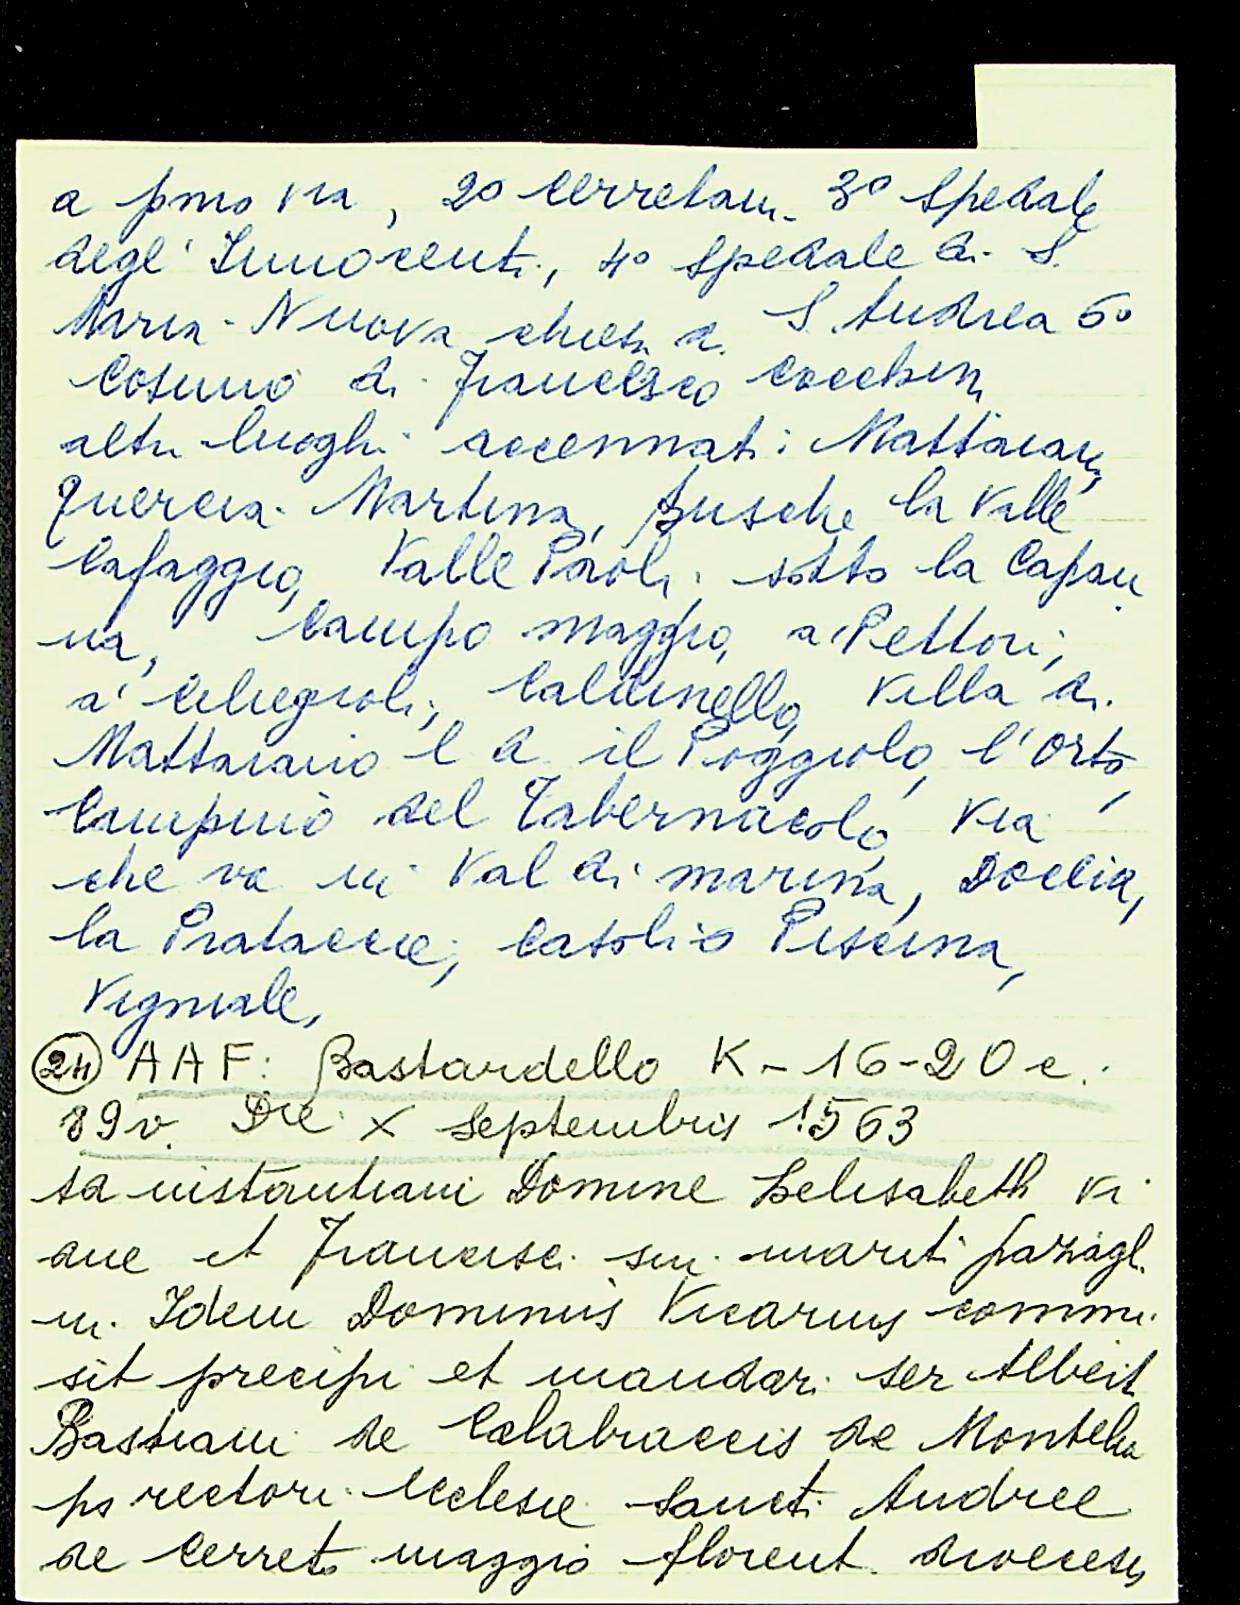 a pmo via, 2º Cerretani 3º Spedale
degl' Innocenti, 4º Spedale di S.
Maria Nuova chiesa di S Andrea 6º
Cosimo di Francesco Cocchini
altri luoghi accennati: Mattaiano,
Quercia Martina, Busche la Valle
Cafaggio, Valle Paoli, sotto la Capan
na, Campo maggio, a' Pettori;
a' Ciliegioli, Caldinello, Villa di
Mattaiano l d il Poggiolo, l'Orto,
Campino del Tabernacolo, Via
che va in Val di marina, Doccia,
la Pratacce, Casoli o Piscina,
Vigniale,
(24) AAF: Bastardello K-16-20 c.
89v. Die X Septembris 1563
ta instantiam Domine Helisabeth Vi
due et Francisci sui mariti
in. Idem Dominus Vicarius commi
sit precipi et mandari ser Alberti
Bastiani de Calabraccis de Montelu
po rectori Ecclesie Sancti Andree
de Cerreto maggio florent. diocesis